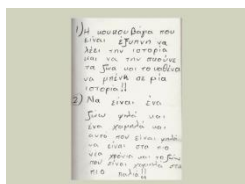 1) Η κουκουβάγια που
είναι έξυπνη να
λέει την ιστορία
και να την ακούνε
τα ζώα και το καθένα
να μπαίνει σε μία
ιστορία!!
2) Να είναι ένα
ζώο ψηλά και
ένα χαμηλά και
αυτό που είναι ψηλά
να είναι στα πιο
νέα χρόνια και το ζώο
που είναι χαμηλά στα
πιο παλιά!!